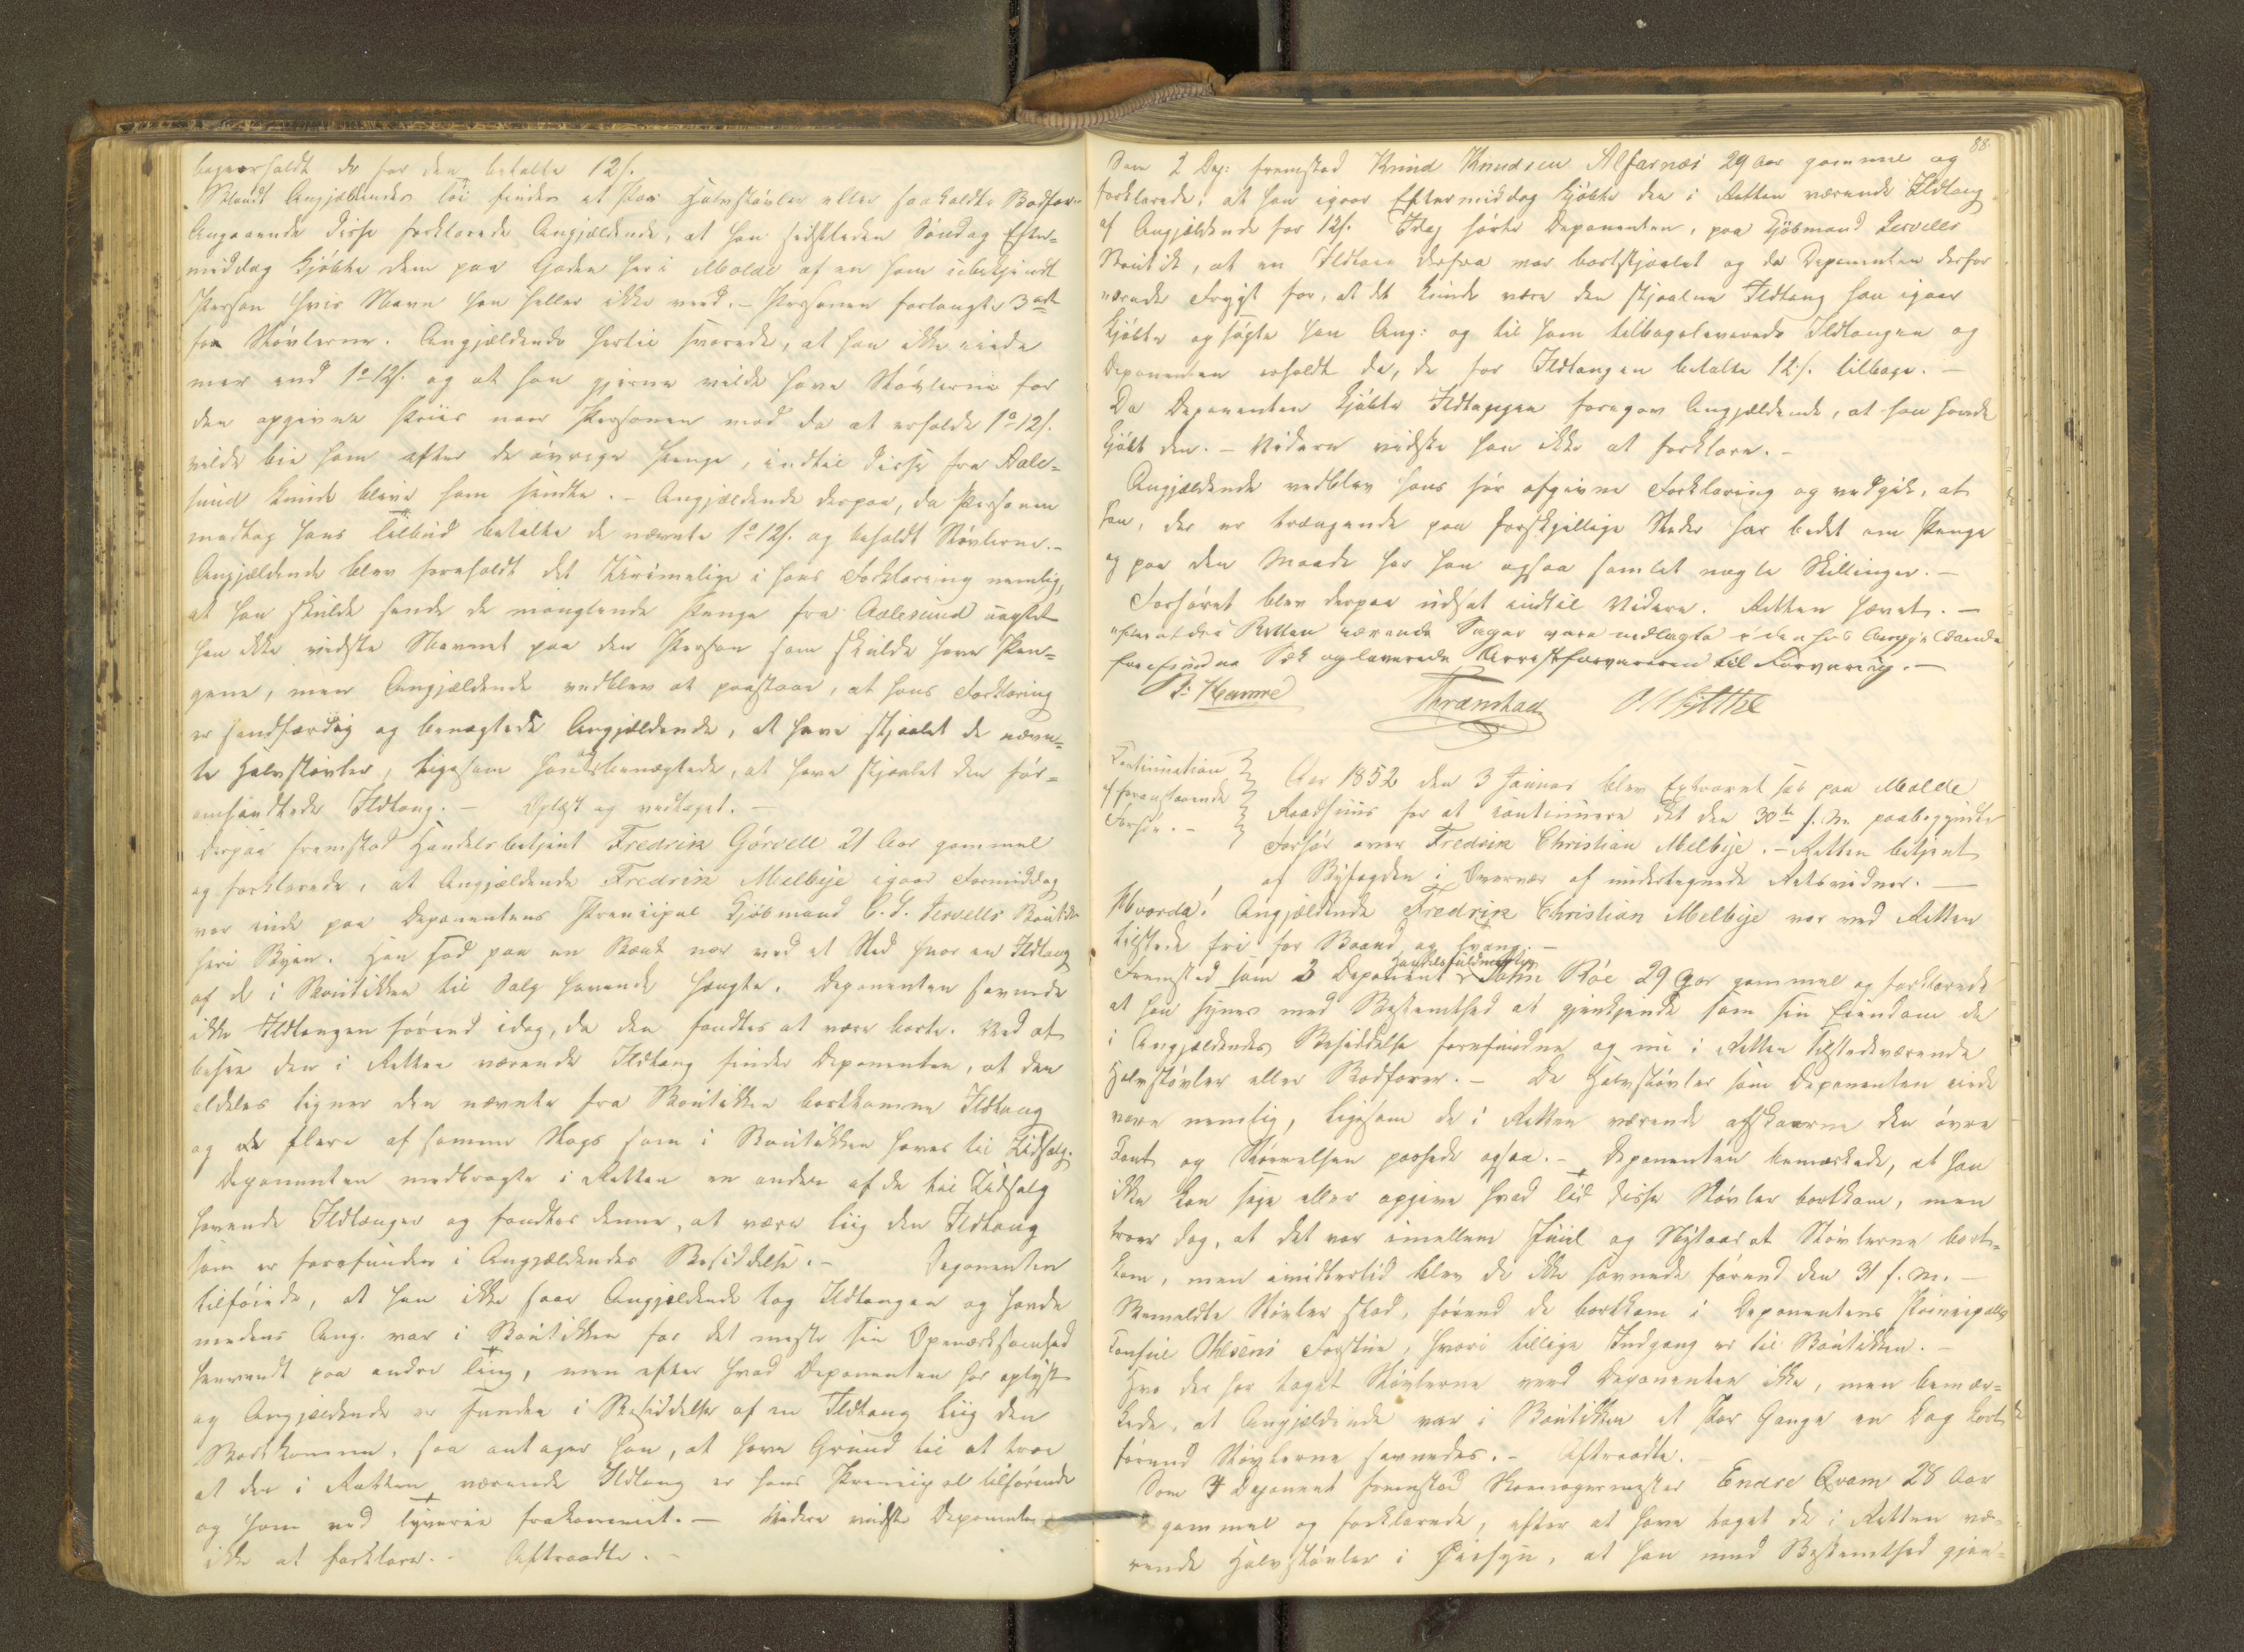 bageerholdt de for den betalte 12 s.
Blandt Angjældendes Töi findes et Par Halvstövler eller saakaldte Bodforer
Angaaende disse forklarede Angjældende, at han sidstleden Söndag Efter-
middag kjöbte dem paa Gaden her i Molde af en ham ubekjendt
Person hvis Navn han heller ikke veed. - Personen forlangte 3 ort
for Stövlerne. Angjældende hertil svarede, at han ikke eiede
mer end 1 o 12 s. og at han gjerne vilde have Stövlerne for
den opgivne Priis naar Personen mod da at erholde 1 o 12 s.
vilde bie ham efter de övrige Penge, indtil disse fra Aale-
sund kunde blive ham sendte. - Angjældende derpaa, da Personen
modtog hans Tilbud betalte de nævnte 1 o 12 s. og beholdt Stövlerne. -
Angjældende blev foreholdt det Urimelige i hans Forklaring nemlig,
at han skulde sende de manglende Penge fra Aalesund uagtet
han ikke vidste Navnet paa den Person som skulde have Pen-
gene, men Angjældende vedblev at paastaae, at hans Forklaring
er sandfærdig og benægtede Angjældende, at have stjaalet de nævn-
te Halvstövler, ligesom han benægtede, at have stjaalet den för-
omhandlede Ildtang. - Oplæst og vedtaget. -
Derpaa fremstod Handelsbetjent Fredrik Görvell 21 Aar gammel
og forklarede, at Angjældende Fredrik Melbije igaar Formiddag
var inde paa Deponentens Principal Kjöbmand C. J. Jervells Boutik
her i Byen. Han sad paa en Bænk nær ved et Sted hvor en Ildtang
af de i Boutikken til Salg havende hængte. Deponenten savnede
ikke Ildtangen förend idag, da den fandtes at være borte. Ved at
besee den i Retten værende Ildtang finder Deponenten, at den
aldeles ligner den nævnte fra Boutikken bortkomne Ildtang
og de flere af samme Slags som i Boutikken haves til Udsalg.
Deponenten medbragte i Retten en anden af de til Udsalg
havende Ildtanger og fandtes denne, at være liig den Ildtang
som er forefunden i Angjældendes Besiddelse. - Deponenten
tilföiede, at han ikke saae Angjældende tog Ildtangen og havde
medens Ang. var i Boutikken for det meste sin Opmærksomhed
henvendt paa andre Ting, men efter hvad Deponenten har oplyst
og Angjældende er funden i Besiddelse af en Ildtang liig den
Bortkomne, saa antager han, at have Grund til at troe
at den i Retten værende Ildtang er hans Principal tilhörende
og ham ved Tyverie frakommet. - Videre vidste Deponenten
ikke at forklare. - Aftraadte. -
88.
Som 2 Dep: fremstod Knud Knudsen Alfarnæs 29 Aar gammel og
forklarede, at han igaar Eftermiddag kjöbte den i Retten værende Ildtang
af Angjældende for 12 s. Idag hörte Deponenten, paa Kjöbmand Jervells
Boutik, at en Ildtang derfra var bortstjaalet og da Deponenten derfor
nærede Frygt for, at det kunde være den stjaalne Ildtang han igaar
kjöbte opsögte han Ang: og til ham tilbageleverede Ildtangen og
Deponenten erholdt da, de for Ildtangen betalte 12 s. tilbage. -
Da Deponenten kjöbte Ildtangen foregav Angjældende, at han havde
kjöbt den. - Videre vidste han ikke at forklare. -
Angjældende vedblev hans för afgivne Forklaring og vedgik, at
han, der er trængende paa forskjellige Steder har bedet om Penge
og paa den Maade har han ogsaa samlet nogle Skillinger. -
Forhöret blev derpaa udsat indtil Videre. Retten hævet. -
efter at de i Retten værende Sager vare nedlagte i den hos Angjældende
forefundne Sæk og leverede Arrestforvareren til Forvaring. -
Thranstad
Continuation
af foranstaaende
Forhör. -
Aar 1852 den 3 Januar blev Extraret sat paa Molde
Raadhuus for at continuere det den 30te f. M. paabegyndte
Forhör over Fredrik Christian Melbije. - Retten betjent
af Byfogden i Overvær af undertegnede Retsvidner. -
Hvorda! Angjældende Fredrik Christian Melbije var ved Retten
tilstede fri for Baand og Tvang. -
Fremstod som 3 Deponent Handelsfuldmægtig John Röe 29 Aar gammel og forklarede
at han synes med Bestemthed at gjenkjende som sin Eiendom de
i Angjældendes Besiddelse forefundne og nu i Retten tilstedeværende
Halvstövler eller Bodforer. - De Halvstövler som Deponenten eiede
vare nemlig, ligesom de i Retten værende afskaarne den övre
Kant og Störrelsen passede ogsaa. - Deponenten bemærkede, at han
ikke kan sige eller opgive hvad Tid disse Stövler bortkom, men
troer dog, at det var imellem Juul og Nytaar at Stövlerne bort-
kom, men imidlertid blev de ikke savnede förend den 31 f. M. -
Bemeldte Stövler stod, förend de bortkom i Deponentens Principals
Consul Ohlsens Forstue, hvori tillige Indgang er til Boutikken. -
Hvo der har taget Stövlerne veed Deponenten ikke, men bemær-
kede, at Angjældende var i Boutikken et Par Gange en Dag kort
förend Stövlerne savnedes. - Aftraadte. -
Som 4 Deponent fremstod Skomagermester Endre Qvam 28 Aar
gammel og forklarede, efter at have taget de i Retten væ-
rende Halvstövler i Öiesyn, at han med Bestemthed gjen-